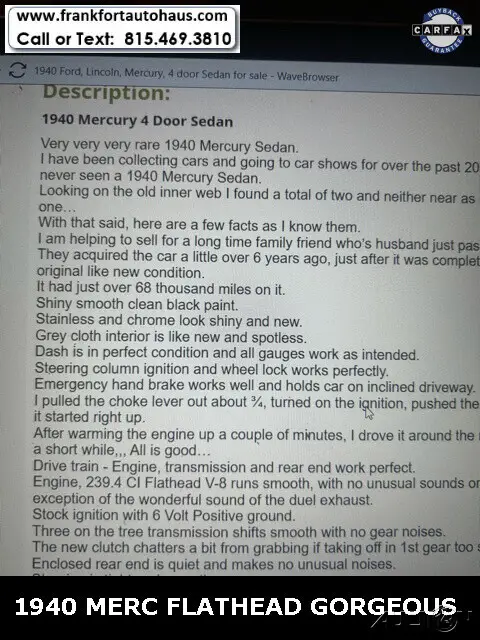 www.frankfortautohaus.com
Call or Text: 815.469.3810
BUYBACK
CARFAX
GUARANTEE
1940 Ford, Lincoln, Mercury, 4 door Sedan for sale - WaveBrowser
Description:
1940 Mercury 4 Door Sedan
Very very very rare 1940 Mercury Sedan.
I have been collecting cars and going to car shows for over the past 20
never seen a 1940 Mercury Sedan.
Looking on the old inner web I found a total of two and neither near as
one...
With that said, here are a few facts as I know them.
I am helping to sell for a long time family friend who's husband just pas
They acquired the car a little over 6 years ago, just after it was complet
original like new condition.
It had just over 68 thousand miles on it.
Shiny smooth clean black paint.
Stainless and chrome look shiny and new.
Grey cloth interior is like new and spotless.
Dash is in perfect condition and all gauges work as intended.
Steering column ignition and wheel lock works perfectly.
Emergency hand brake works well and holds car on inclined driveway.
I pulled the choke lever out about ¾, turned on the ignition, pushed the
it started right up.
After warming the engine up a couple of minutes, I drove it around the
a short while,,, All is good...
Drive train - Engine, transmission and rear end work perfect.
Engine, 239.4 CI Flathead V-8 runs smooth, with no unusual sounds or
exception of the wonderful sound of the duel exhaust.
Stock ignition with 6 Volt Positive ground.
Three on the tree transmission shifts smooth with no gear noises.
The new clutch chatters a bit from grabbing if taking off in 1st gear too
Enclosed rear end is quiet and makes no unusual noises.
1940 MERC FLATHEAD GORGEOUS